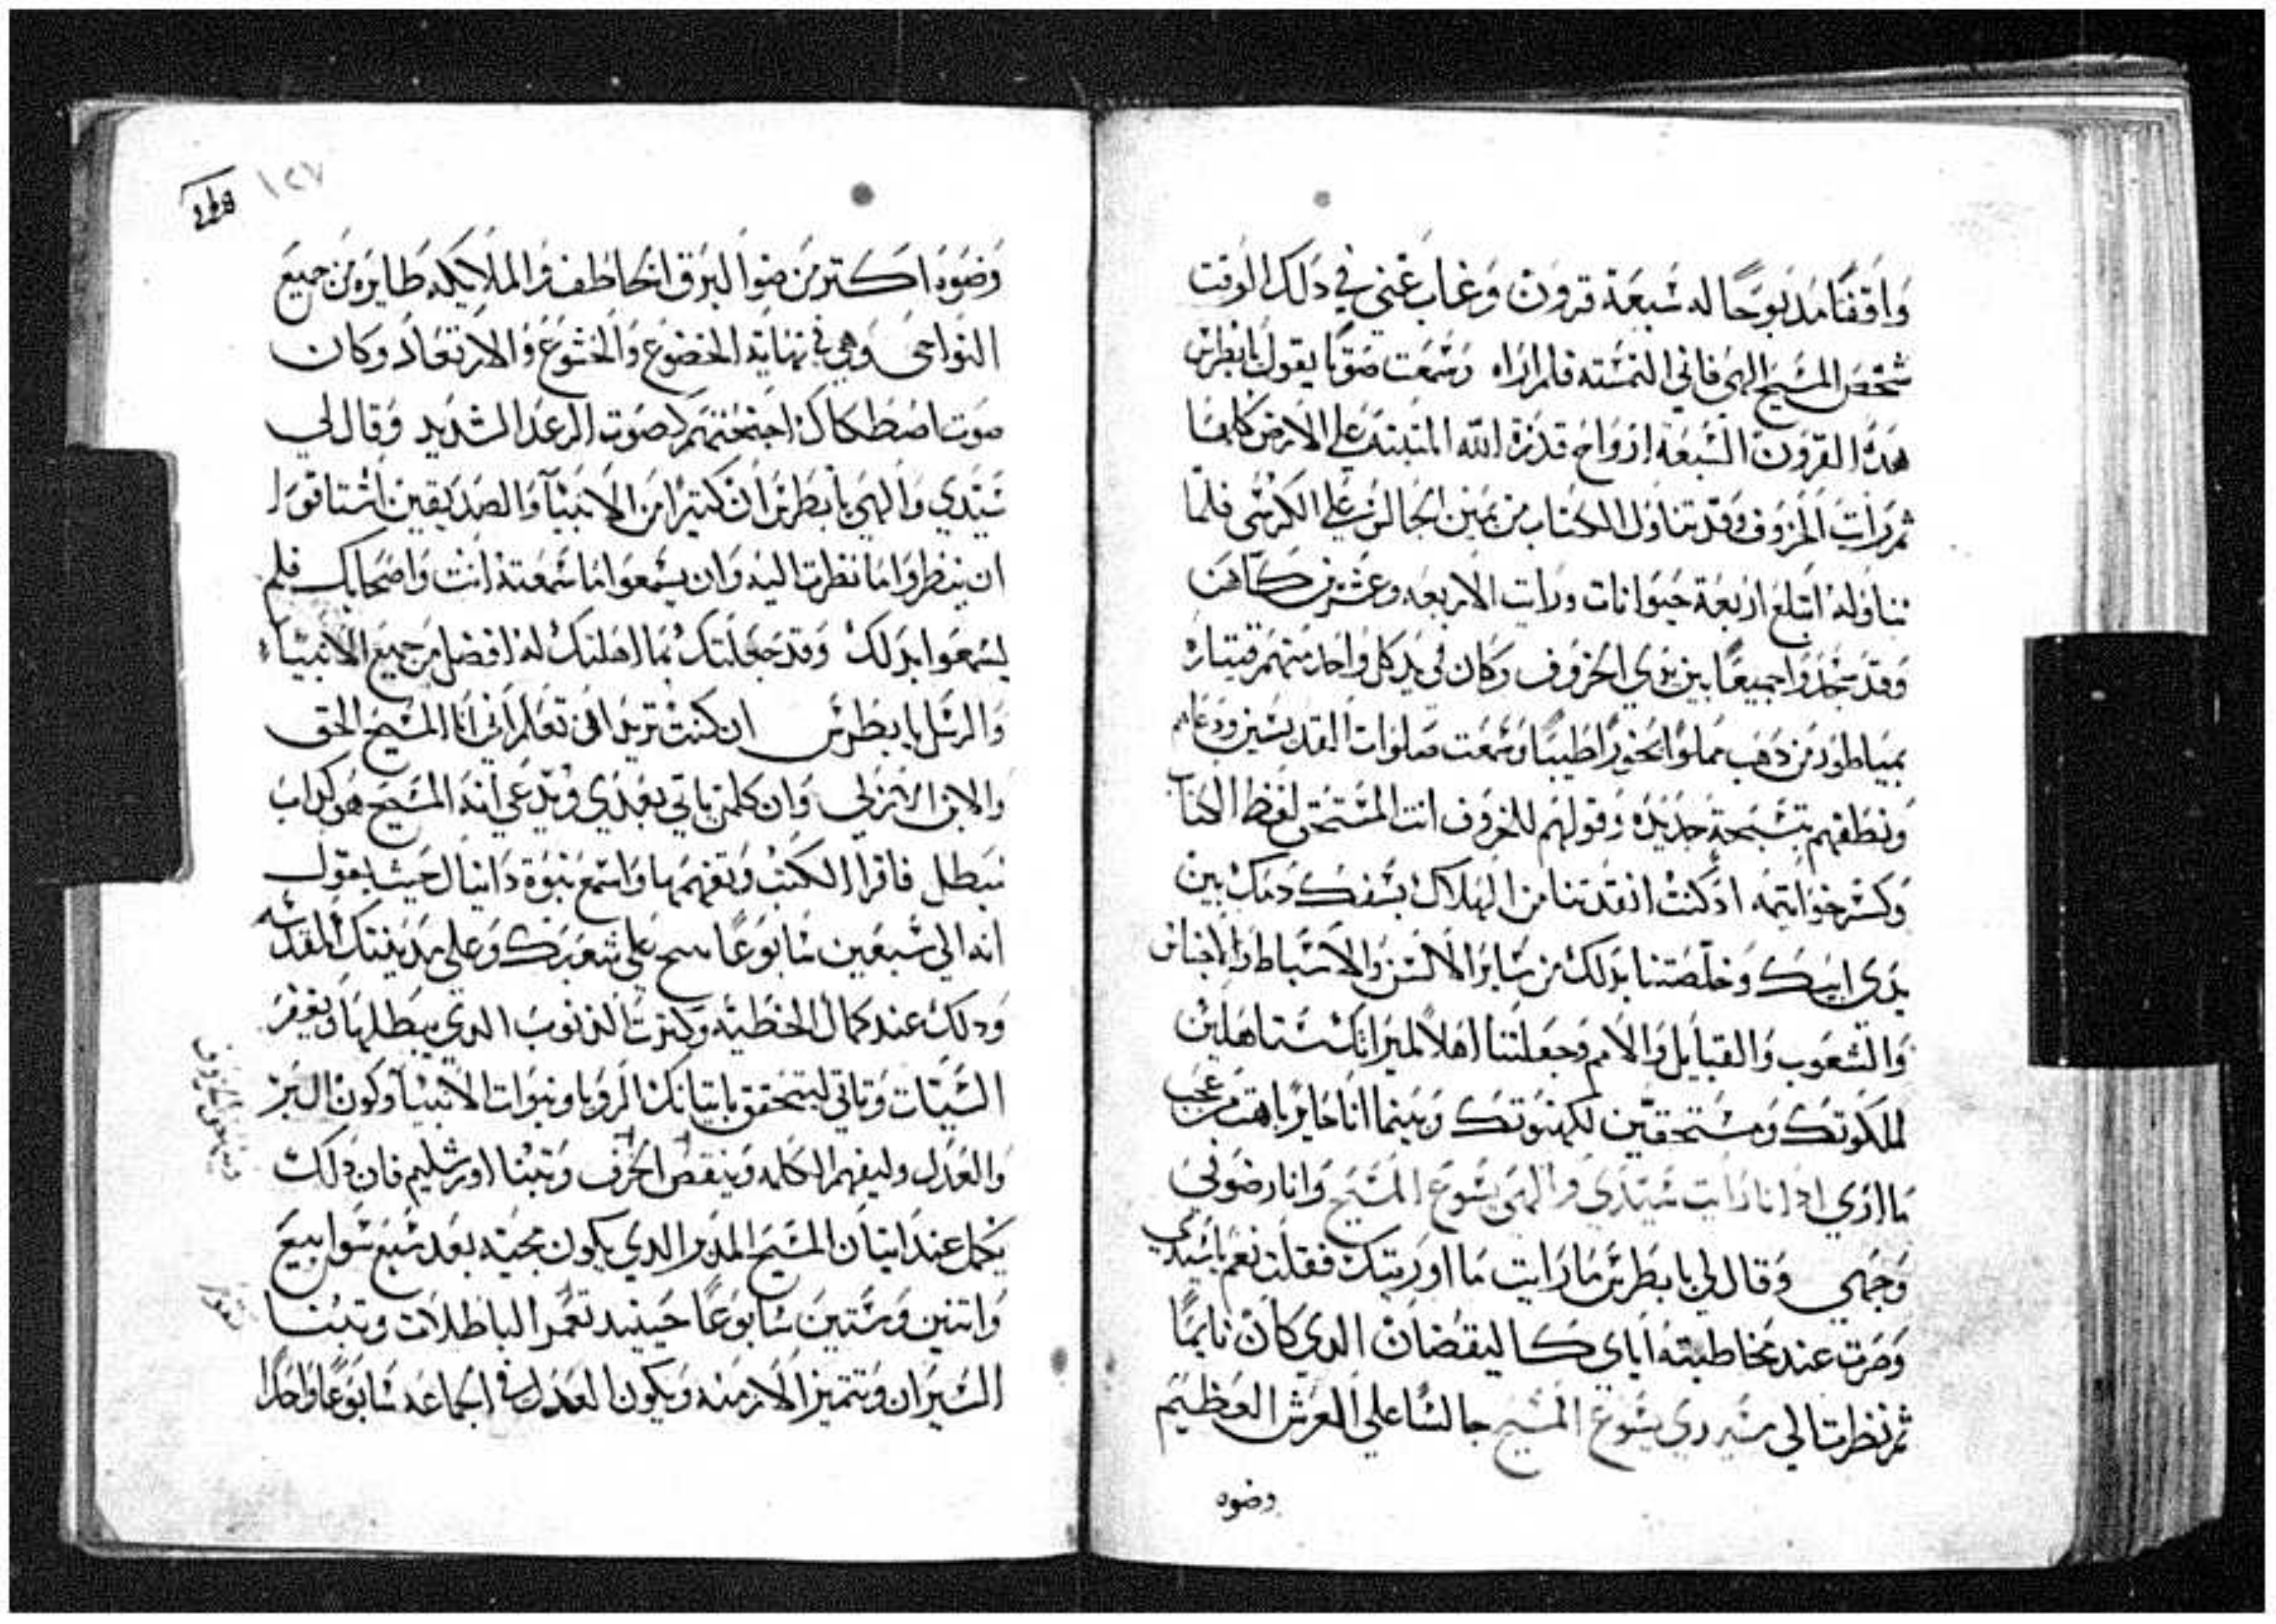 وَاقفًا مدبوحًا له سَبعَة قرون وَغاب عَني في دَلك الوقت
شخص المسَيح الهي فاني التمسته فلم اراه وَسَمعت صَوتًا يقول يا بطرس
هَده القرون السَبعه ارواح قدرة الله المتبته علي الارض كلها
ثم رَايت الخروف وقد تناول الكتاب من يمين الجالس علي الكرسي فلما
تناوله ابتلع اربعَة حيوانات ورايت الاربعه وعشرين كاهن
وَقد سَجَدوا جميعًا بين يدي الخروف وكان في يد كل واحد منهم قيتاره
بمياطور من دهب مملوا بخورًا طيبًا وسَمعت صلوات القديسَين ودعاهم
ونطقهم بتسبحة جديده وقولهم للخروف انت المستحق لفظ الكتاب
وَكسر خواتيمه اد كنت انقدتنا من الهلاك بسَفك دمك بين
يدي ابيك وَخلصتنا بدلك من سَاير الالسن والاسَباط والاجناس
والشعوب والقبايل والامم وجعلتنا اهلاً لميراتك مستاهلين
لملكوتك ومستحقين لكهنوتك وبينما انا حاير باهت من عجب
ما اري اد انا رايت سَيدي والهي يسَوع المسَيح وانا رضوني
وجهي وقال لي يا بطرس ما رايت ما اوريتك فقلت نعم يا سَيدي
وَصرت عند مخاطبته اياي كاليقضان الدي كان نايمًا
ثم نظرت الي سَيدي يسَوع المسَيح جالسًا علي العرش العظيم
وضوه
١٢٧
وَضوه اكتر من ضوا البرق الخاطف والملايكه طايره من جميع
النواحي وهي في نهاية الخضوع والخشوع والارتعاد وكان
صوت اصطكاك اجنحتهم كصوت الرعد الشديد وقال لي
سَيدي والهي يا بطرس ان كتيرًا من الانبيآ والصديقين اشتاقوا
ان ينظروا ما نظرت اليه وان يسمعوا ما سَمعته انت واصحابك فلم
يسَمعوا بدلك وقد جعلتك بما اهلتك له افضل من جميع الانبياء
والرسَل يا بطرس ان كنت تريد ان تعلم اني انا المسَيح الحق
والابن الازلي وان كلمن ياتي بعدي ويدعي انه المسيح هو كداب
مبطل فاقرا الكتب وتفهمها واسمع نبوة دانيال حيث يقول
انه الي سَبعين سَابوعًا سح علي شعبك وعلي مدينتك المقدسَه
ودلك عند كمال الخطيه وكترت الدنوب الدي يبطلها ويغفر
السَيات وتاتي ليتحقق باتيانك الرويا ونبوات الانبيا وكون البر
والعدل وليفهم الكلمه وينقص الحرف وتبنا اورشليم فان دلك
يكمل عند اتيان المسَيح المدبر الدي يكون مجيته بعد سَبع سوابيع
واتنين وسَتين سَابوعًا حينيد تعمر الباطلات وتبنا
السَيران وتتميز الازمنه ويكون العدل في الجماعه سَابوعًا واحدًا